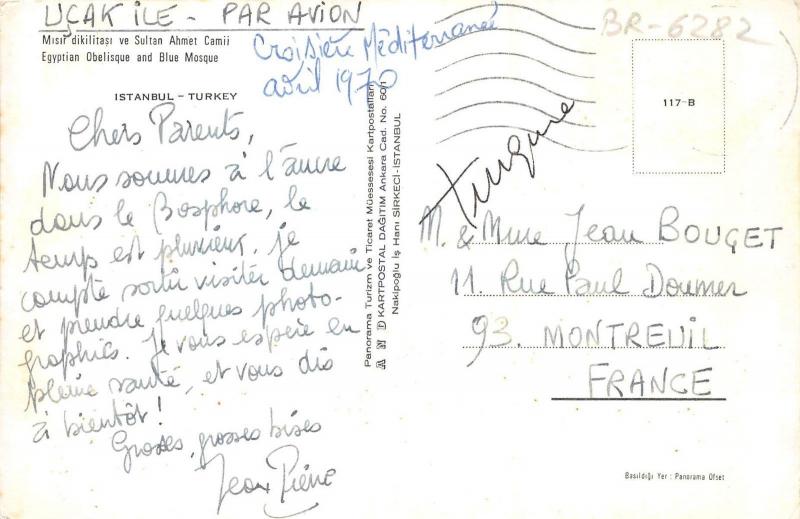 UÇAK İLE - PAR AVION
Mısır dikilitaşı ve Sultan Ahmet Camii
Egyptian Obelisque and Blue Mosque
ISTANBUL – TURKEY
Croisière Méditerranée
avril 1970
Chers Parents,
Nous sommes à l'ancre
dans le Bosphore, le
temps est pluvieux. je
compte sortir visiter demain
et prendre quelques photo-
graphies. Je vous espère en
pleine santé, et vous dis
à bientôt !
Grosses, grosses bises
Jean Pierre
Panorama Turizm ve Ticaret Müessesesi Kartpostalları
AND KARTPOSTAL DAĞITIM Ankara Cad. No. 60/1
Nakipoğlu İş Hanı SİRKECİ-İSTANBUL
BR-6282
117-B
Turquie
M. & Mme Jean BOUGET
11. Rue Paul Doumer
93. MONTREUIL
FRANCE
Basıldığı Yer : Panorama Ofset